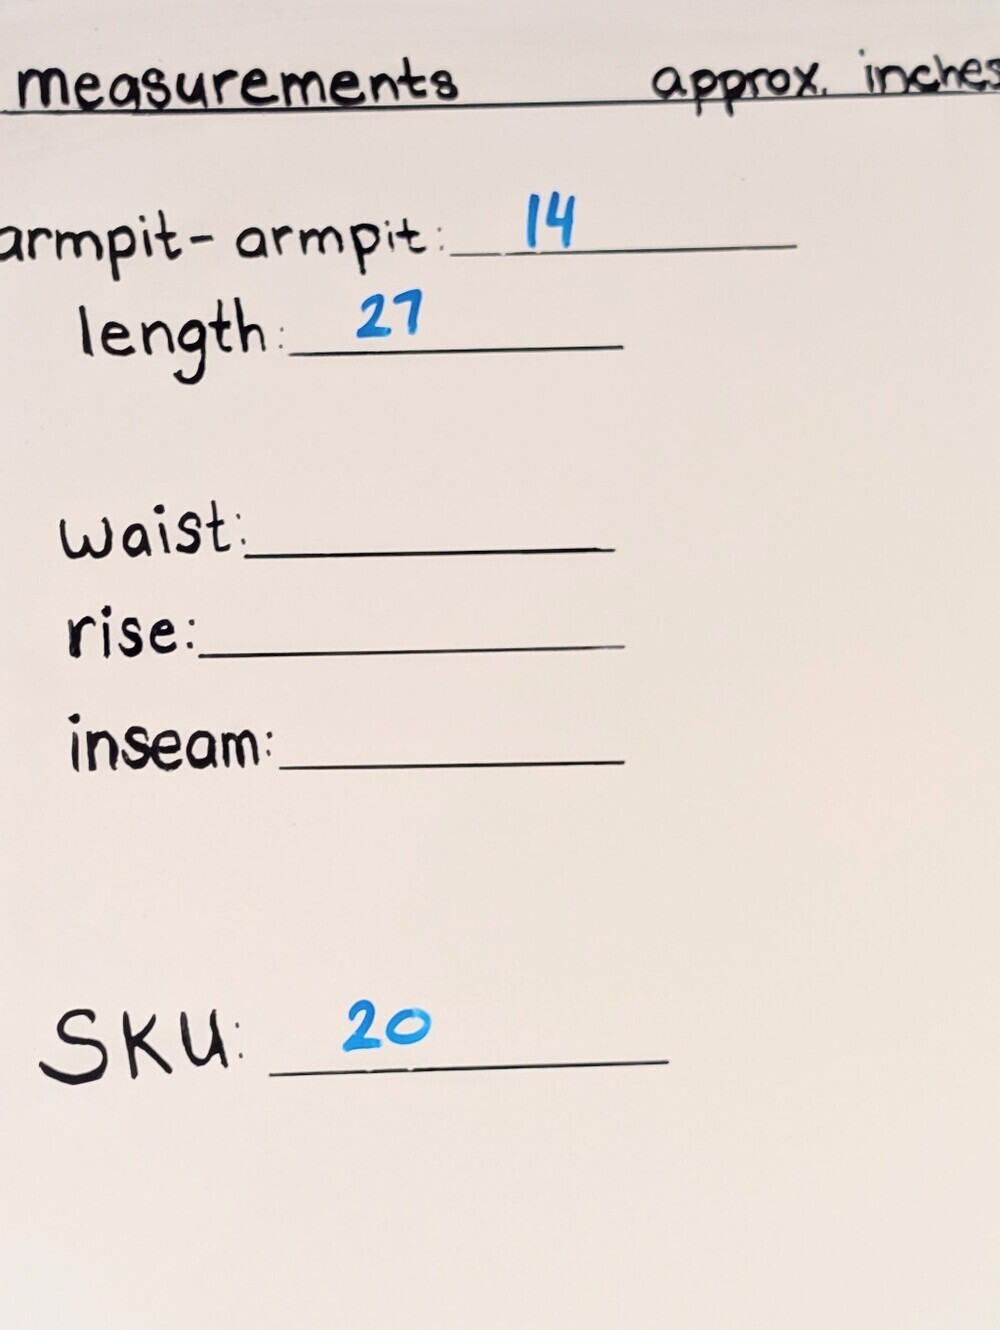 measurements approx. inches
armpit-armpit: 14
length: 27
waist:
rise:
inseam:
SKU: 20